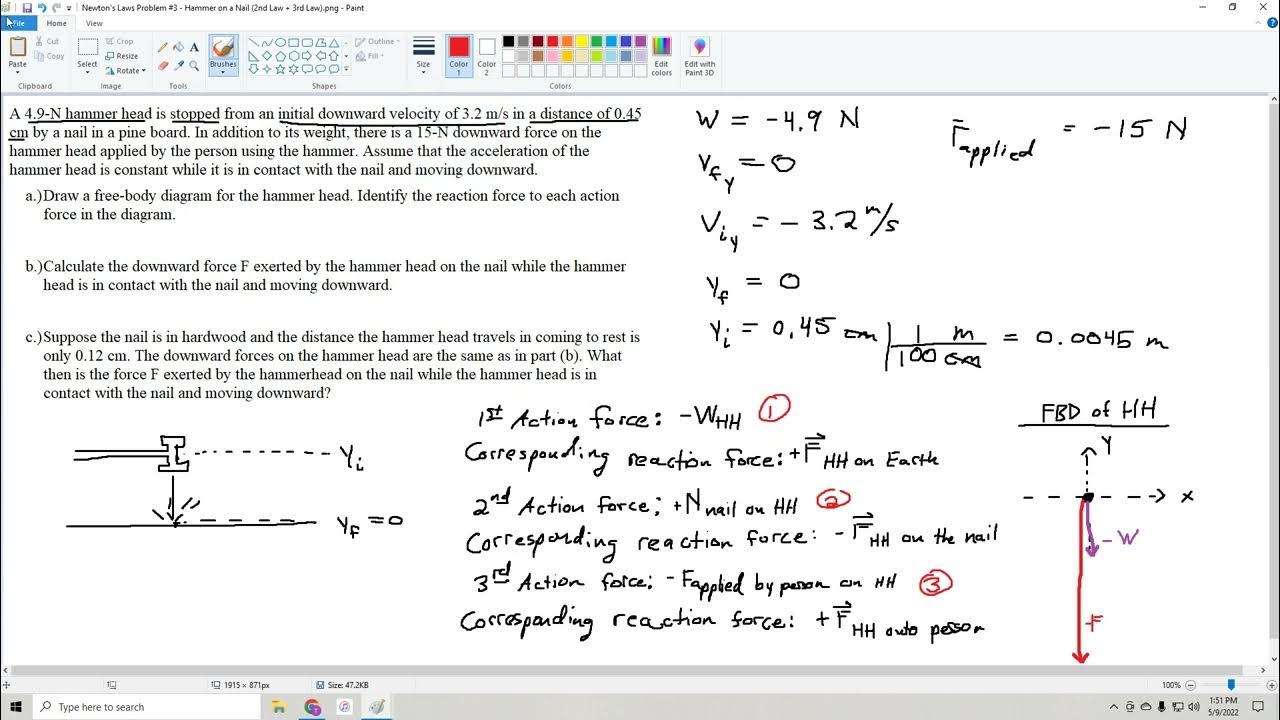 Newton's Laws Problem #3 - Hammer on a Nail (2nd Law + 3rd Law).png - Paint
File Home View
Paste
Cut
Copy
Clipboard
Select
Crop
Resize
Rotate
Image
Tools
Brushes
Outline
Fill
Shapes
Size
Color 1
Color 2
Edit colors
Colors
Edit with Paint 3D
A 4.9-N hammer head is stopped from an initial downward velocity of 3.2 m/s in a distance of 0.45
cm by a nail in a pine board. In addition to its weight, there is a 15-N downward force on the
hammer head applied by the person using the hammer. Assume that the acceleration of the
hammer head is constant while it is in contact with the nail and moving downward.
a.) Draw a free-body diagram for the hammer head. Identify the reaction force to each action
force in the diagram.
b.) Calculate the downward force F exerted by the hammer head on the nail while the hammer
head is in contact with the nail and moving downward.
c.) Suppose the nail is in hardwood and the distance the hammer head travels in coming to rest is
only 0.12 cm. The downward forces on the hammer head are the same as in part (b). What
then is the force F exerted by the hammerhead on the nail while the hammer head is in
contact with the nail and moving downward?
W = -4.9 N
F applied = -15 N
Vfy = 0
Viy = - 3.2 m/s
yf = 0
yi = 0.45 cm | 1 m / 100 cm = 0.0045 m
yi
yf = 0
1st Action force: -WHH 1
Corresponding reaction force: +F HH on Earth
2nd Action force; +N nail on HH 2
Corresponding reaction force: - F HH on the nail
3rd Action force; - Fapplied by person on HH 3
Corresponding reaction force: + F HH onto person
FBD of HH
y
x
-W
F
1915 × 871px
Size: 47.2KB
100%
Type here to search
1:51 PM
5/9/2022